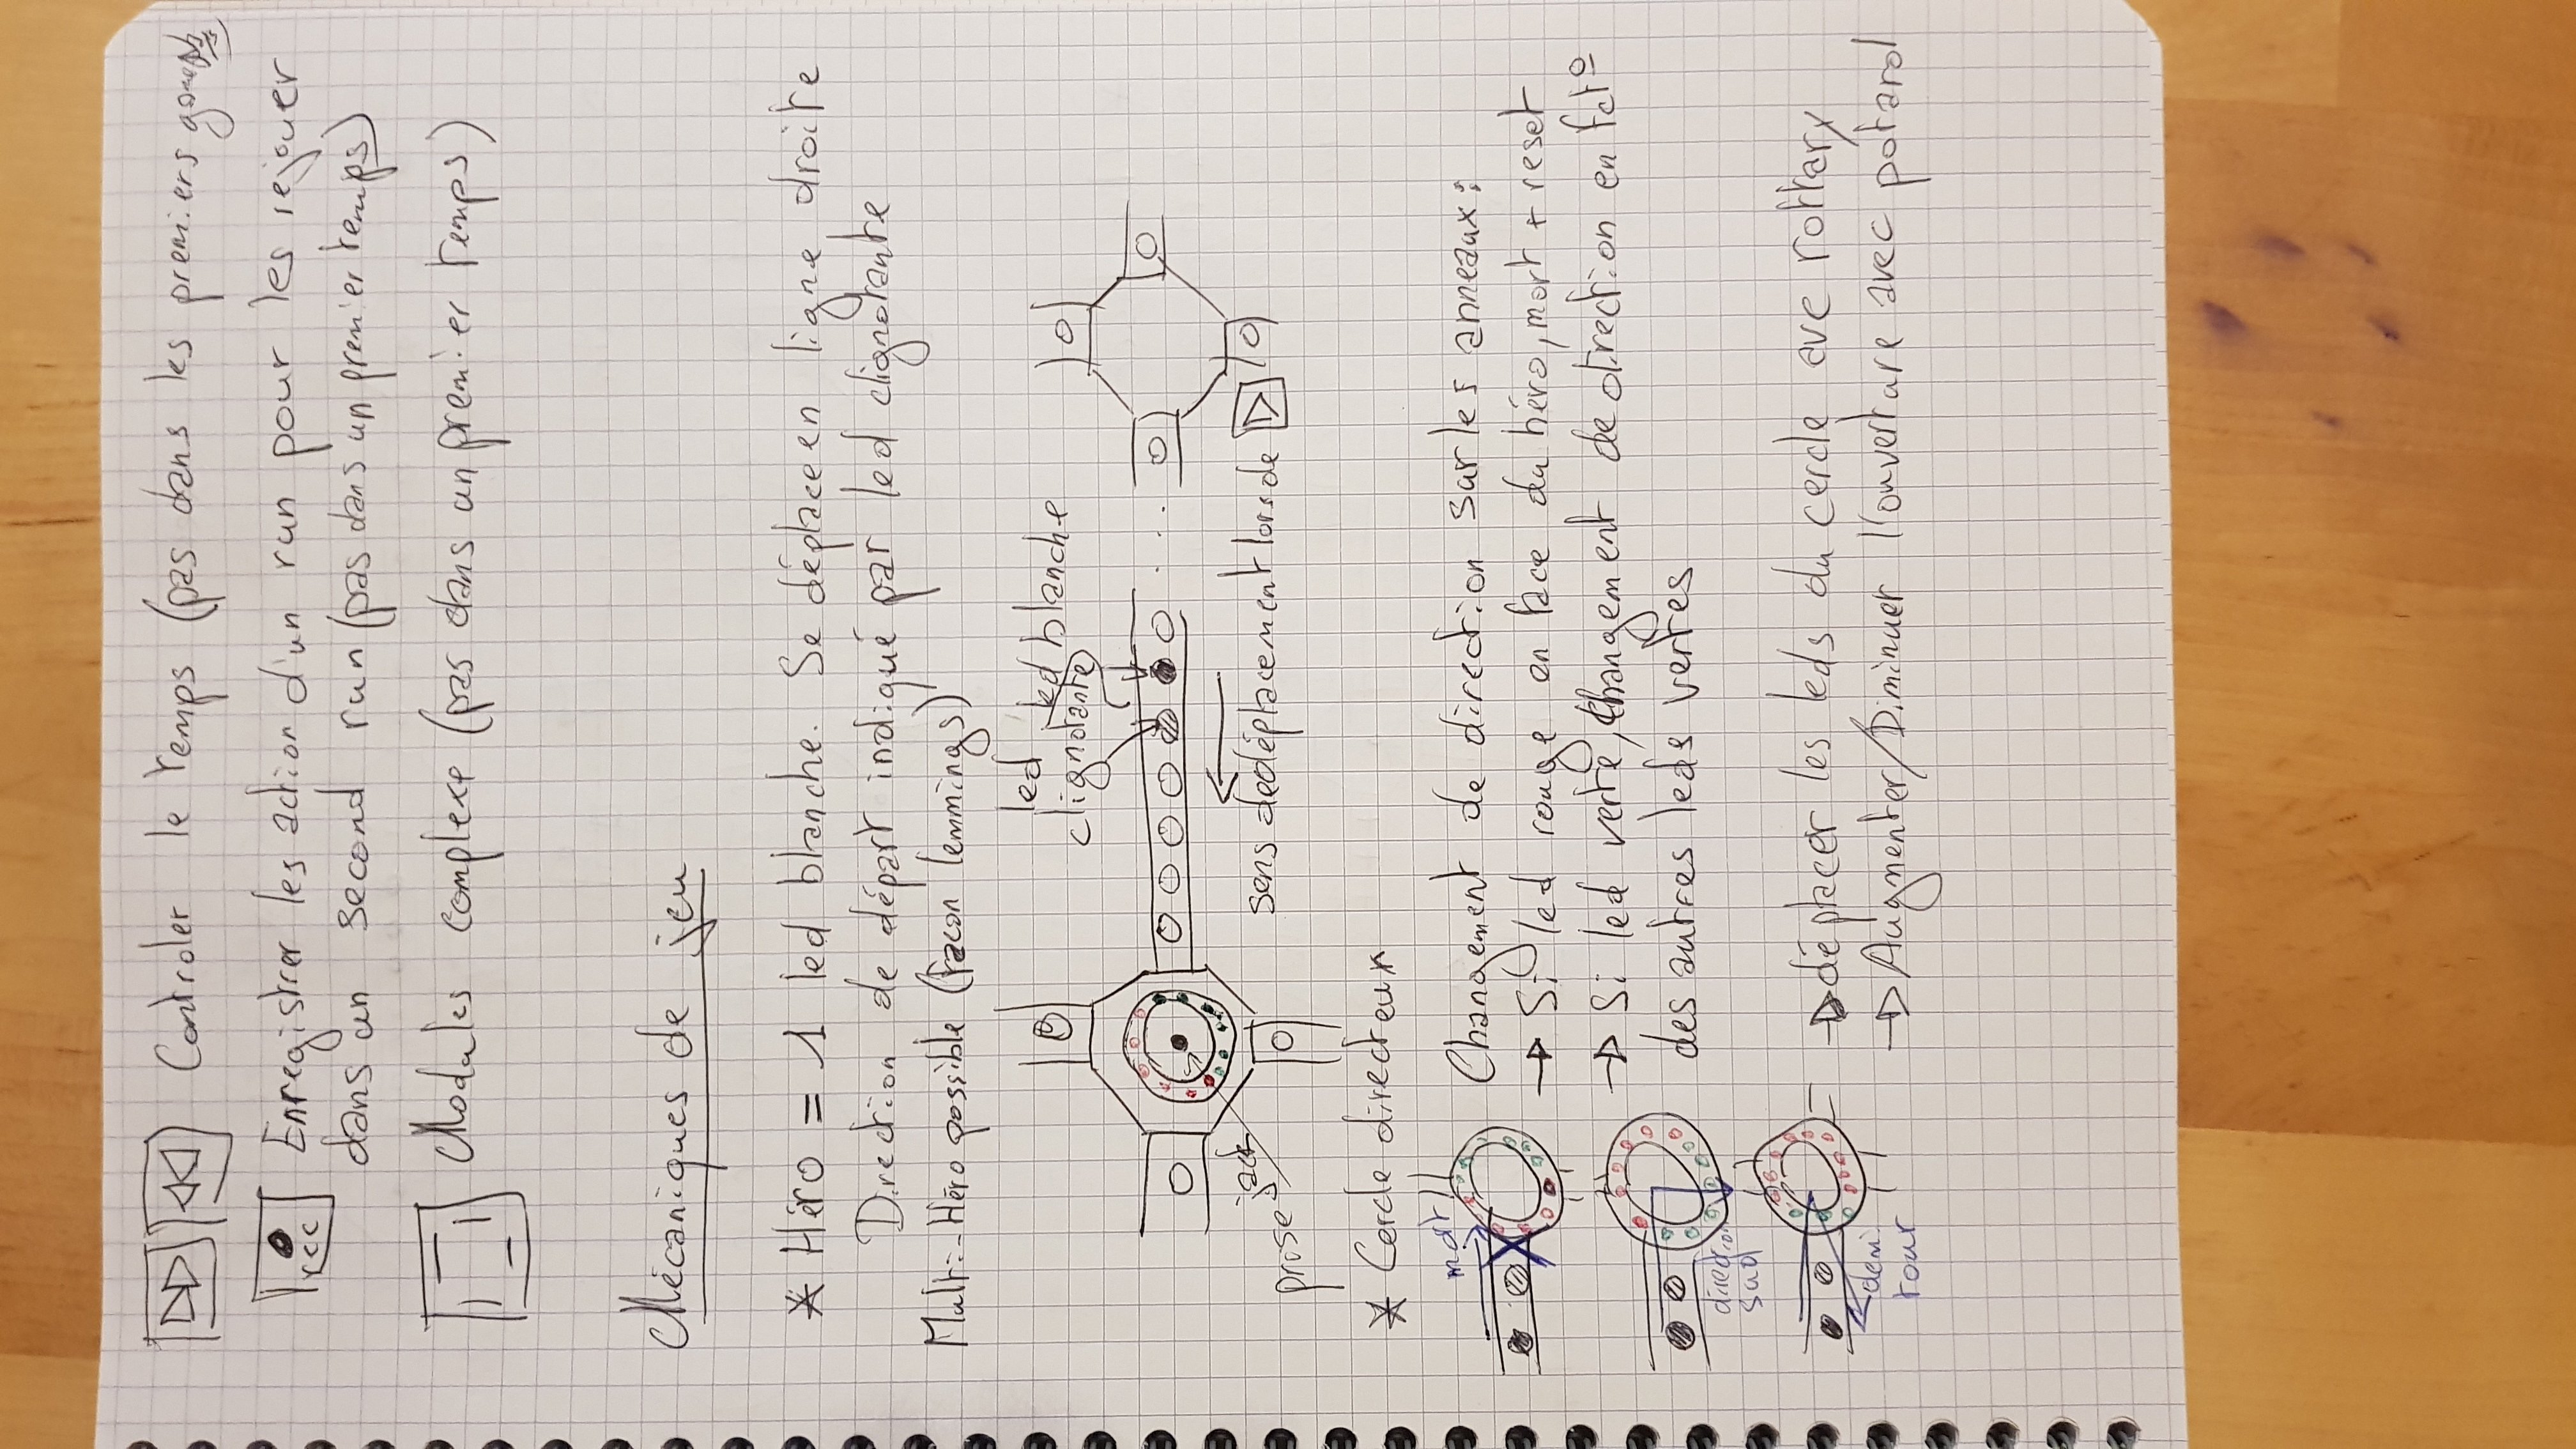 Controler le temps (pas dans les premiers
rec Enregistrer les action d'un run pour les rejouer
dans un second run (pas dans un premier temps)
Modules complexe (pas dans un premier temps)
Mécaniques de jeu
* Héro = 1 led blanche. Se déplace en ligne droite
Direction de départ indiqué par led clignotante
Multi-Héro possible (facon lemmings)
led
clignotante
led blanche
prise jack
sens de déplacement lors de
* Cercle directeur
mort
Changement de direction sur les anneaux:
→ Si led rouge en face du héro, mort + reset
→ Si led verte, changement de direction en fctº
des autres leds vertes
direction
sud
→ déplacer les leds du cercle ave rottary
demi
tour
→ Augmenter/Diminuer l'ouverture avec potard